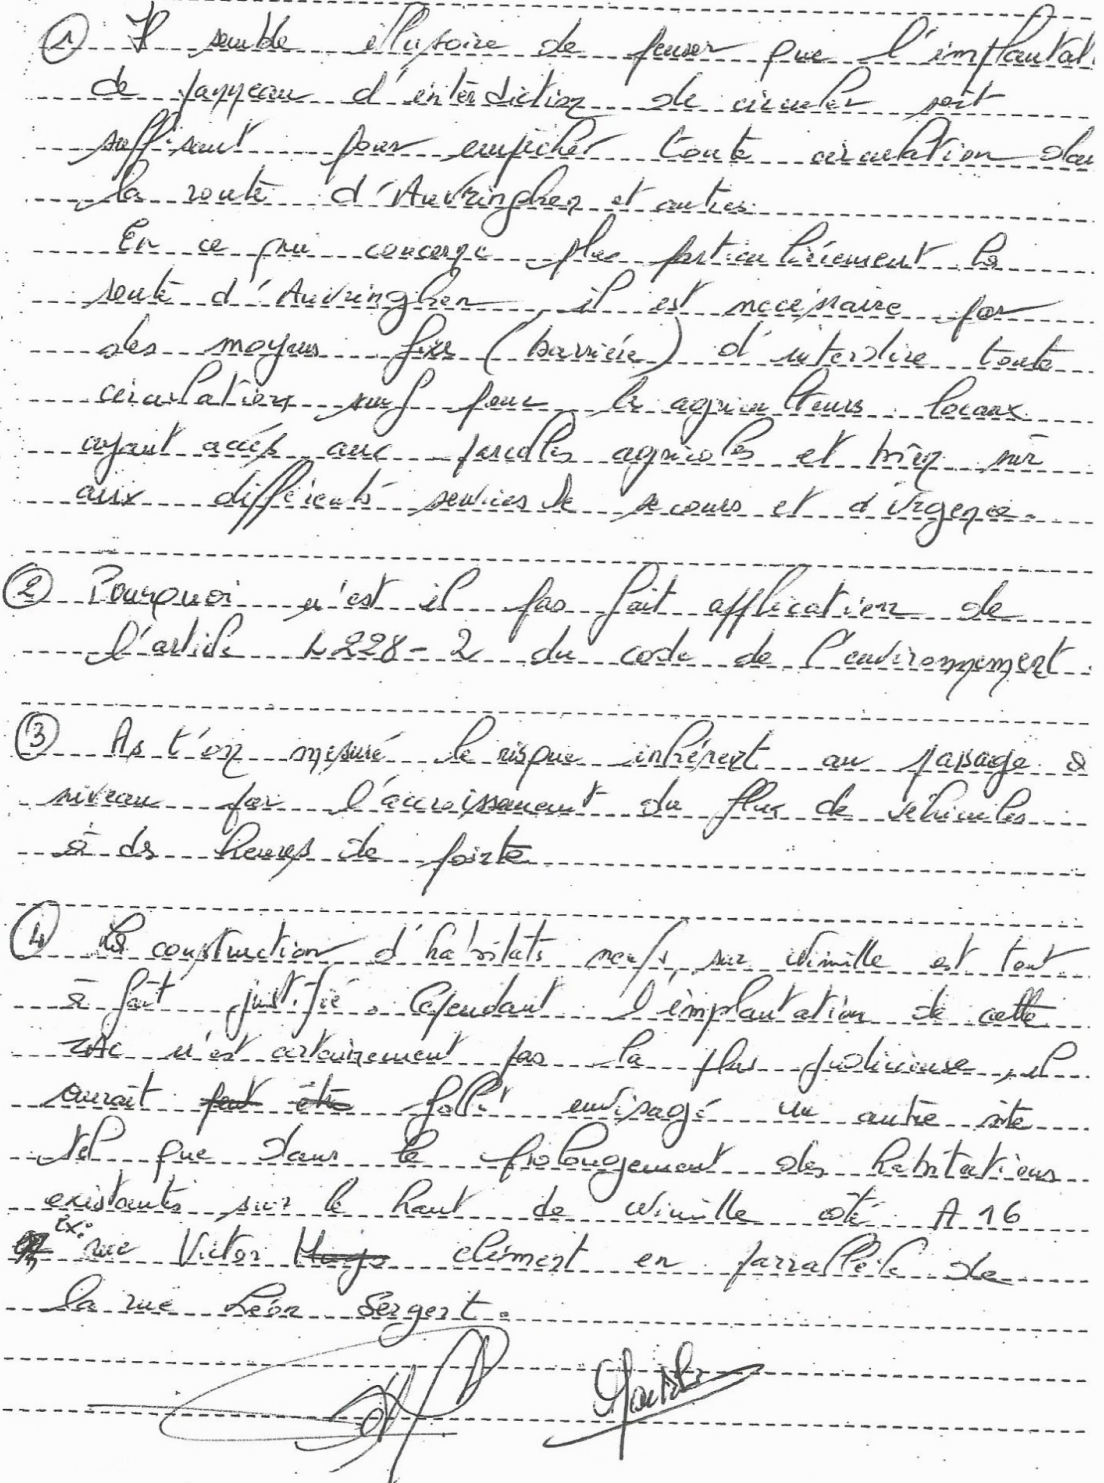 ① Il semble illusoire de penser que l'implantat
de panneau d'interdiction de circuler soit
suffisant pour empêcher toute circulation dan
la route d'Auvringhen et autres.
En ce qui concerne plus particulièrement la
route d'Auvringhen, il est nécéssaire par
des moyens fixes (barrière) d'interdire toute
circulation sauf pour les agriculteurs locaux
ayant accés aux parcelles agricoles et bien sûr
aux différents services de secours et d'urgence.
② Pourquoi n'est il pas fait application de
l'article L228-2 du code de l'environnement.
③ As t'on mesuré le risque inhérent au passage à
niveau par l'accroissement du flux de véhicules
à des heures de pointe
④ La construction d'habitats neufs sur Wimille est tout
à fait justifié. Cependant l'implantation de cette
ZAC n'est certainement pas la plus judicieuse, il
aurait peut être fallu envisagé un autre site
tel que dans le prolongement des habitations
existantes sur le haut de Wimille coté A 16
ex: rue Victor Hugo clément en parrallèle de
la rue Léon Sergent.